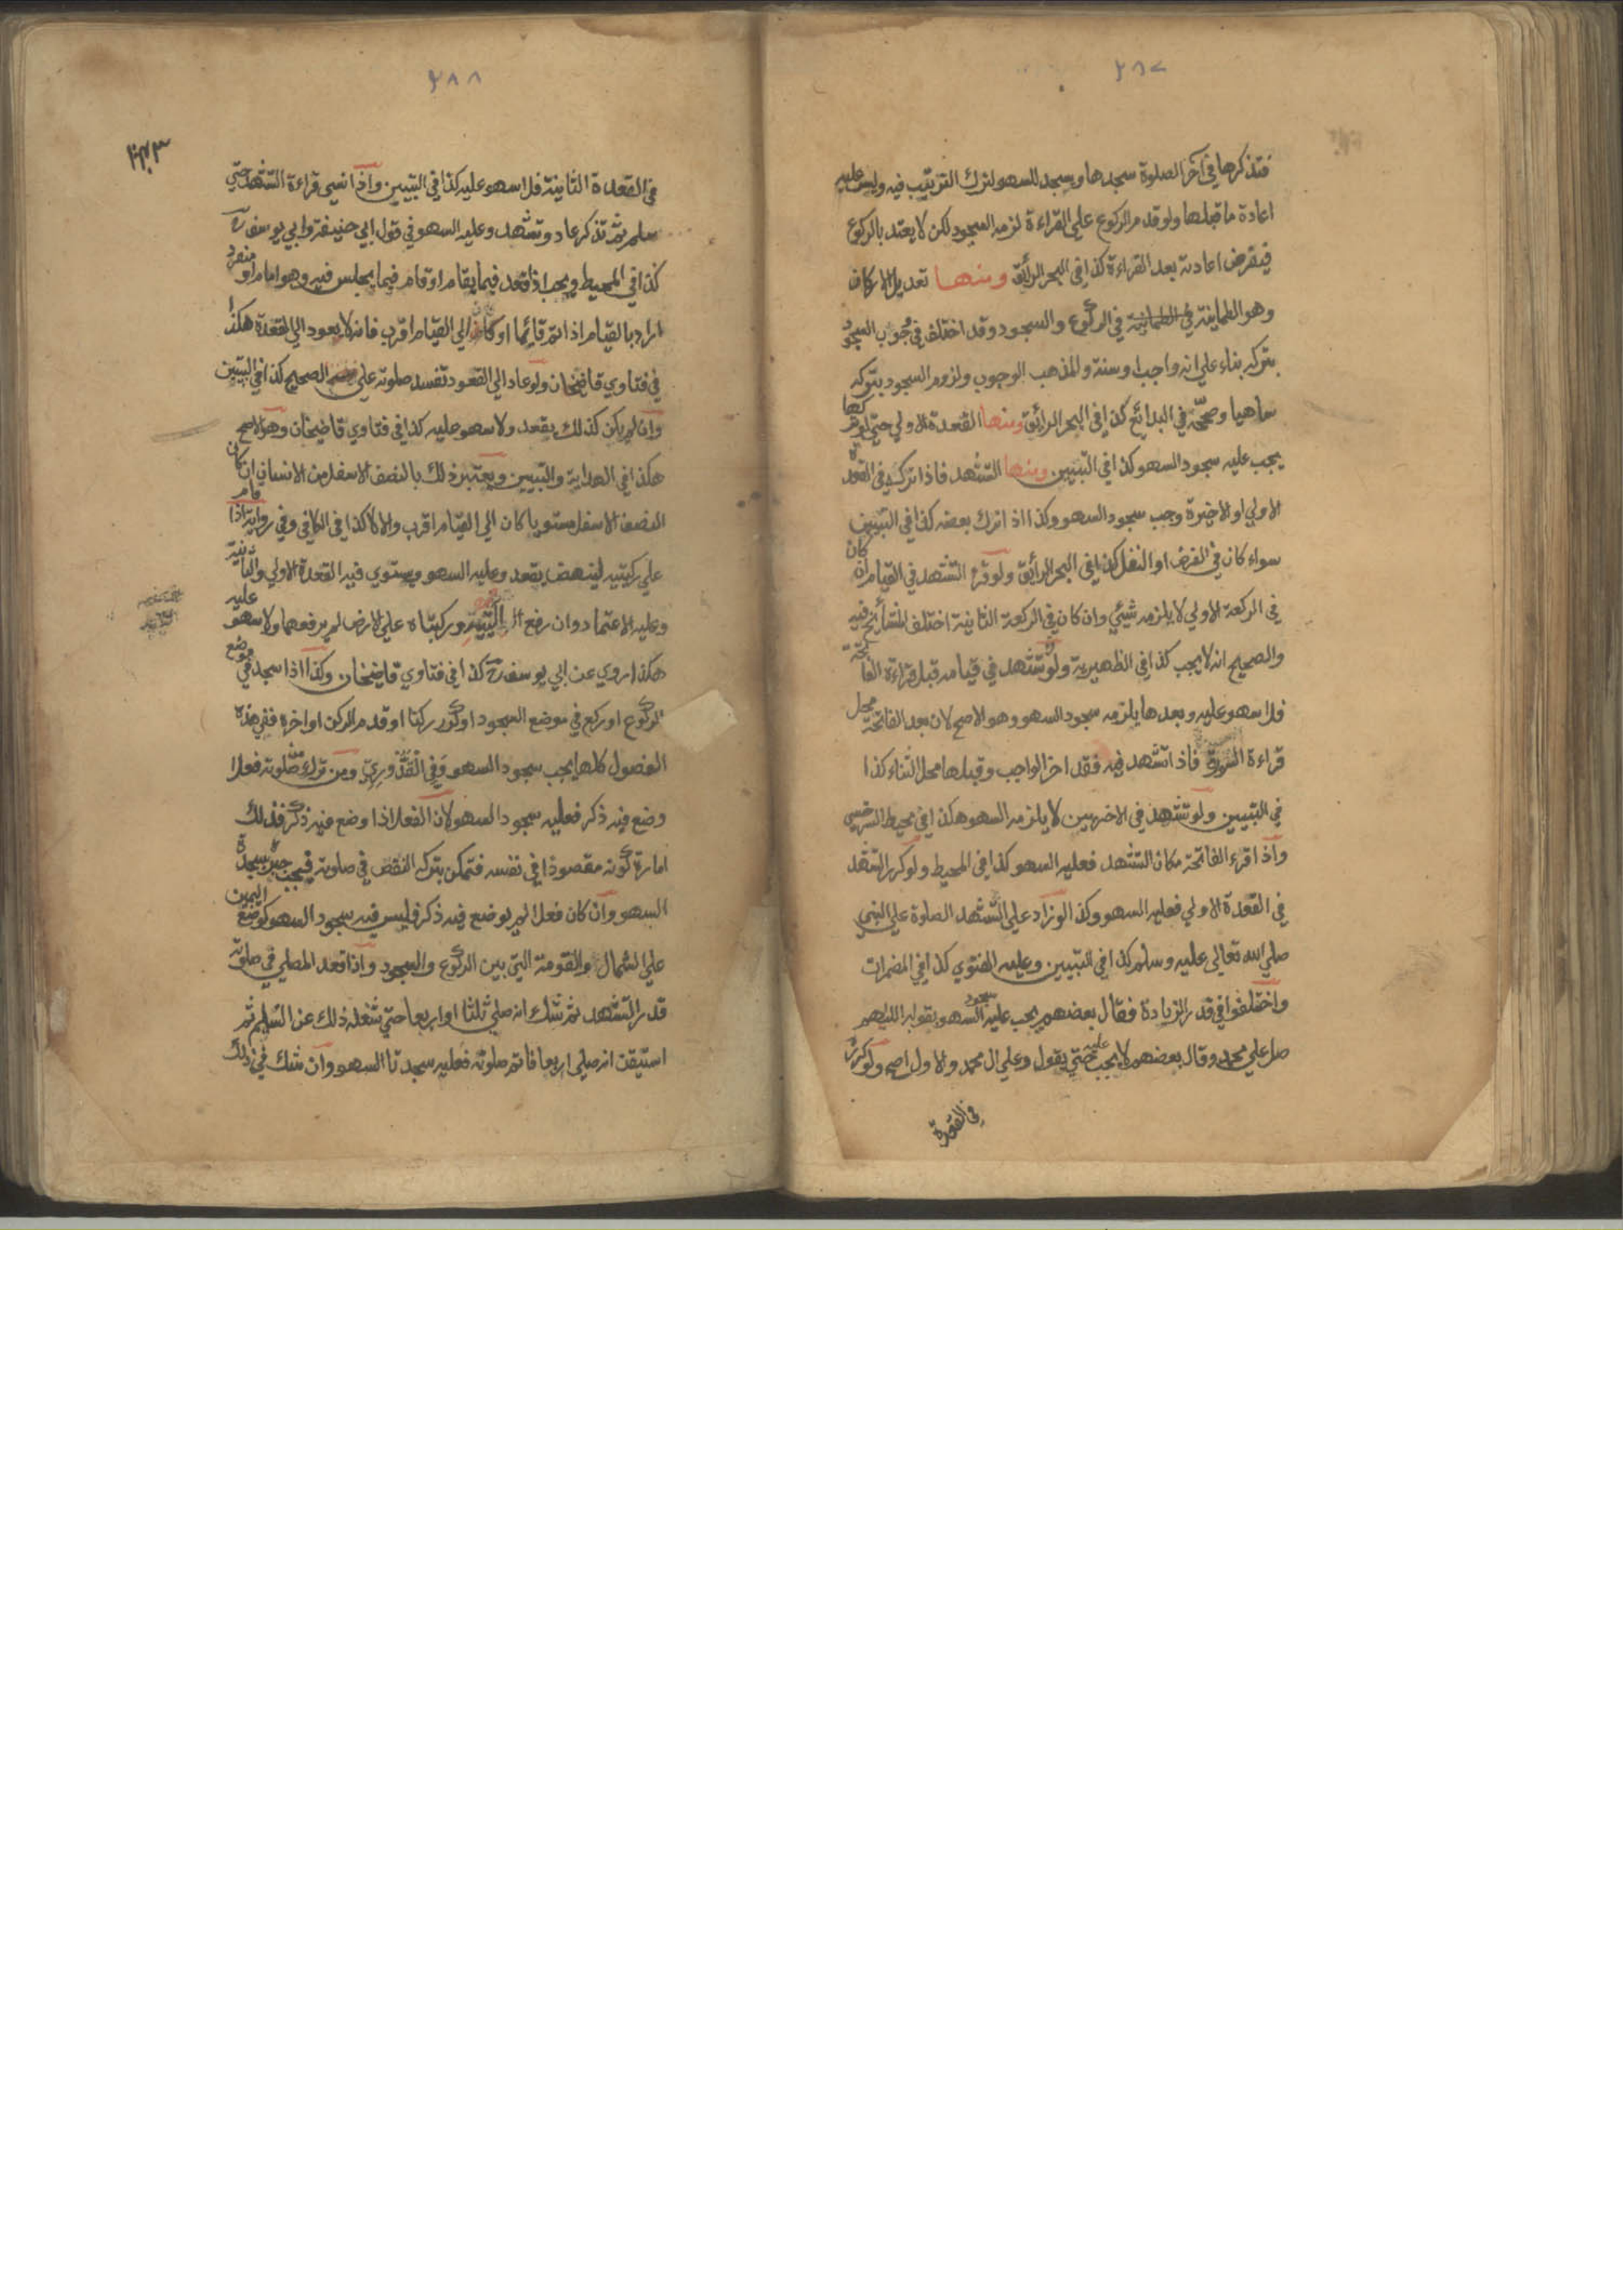 ٢٨٧
فتذكرها في آخر الصلوة سجدها وسجد للسهو لترك الترتيب فيه وليس عليه
اعادة ما قبلها ولو قدم الركوع علي القراءة لزمه السجود لكن لا يعتد بالركوع
فيفرض اعادته بعد القراءة كذا في البحر الرائق ومنها تعديل الاركان
وهو الطمانية في الركوع والسجود وقد اختلف في وجوب السجود
بتركه بناء علي انه واجب او سنة والمذهب الوجوب ولزوم السجود بتركه
ساهيا وصححه في البدائع كذا في البحر الرائق ومنها القعدة الاولي حتي لو تركها
يجب عليه سجود السهو كذا في التبيين ومنها التشهد فاذا تركه في القعدة
الاولي او الاخيرة وجب سجود السهو وكذا اذا ترك بعضه كذا في التبيين
سواء كان في الفرض او النفل كذا في البحر الرائق ولو قرء التشهد في القيام ان كان
في الركعة الاولي لا يلزمه شيئي وان كان في الركعة الثانية اختلف المشائخ فيه
والصحيح انه لا يجب كذا في الظهيرية ولو تشهد في قيامه قبل قراءة الفاتحة
فلا سهو عليه وبعدها يلزمه سجود السهو وهو الاصح لان بعد الفاتحة محل
قراءة السورة فاذا تشهد فيه فقد اخر الواجب وقبلها محل الثناء كذا
في التبيين ولو تشهد في الاخريين لا يلزمه السهو هكذا في محيط السرخسي
واذا قرء الفاتحة مكان التشهد فعليه السهو كذا في المحيط ولو كرر التشهد
في القعدة الاولي فعليه السهو وكذا لو زاد علي التشهد الصلوة علي النبي
صلي الله تعالي عليه وسلم كذا في التبيين وعليه الفتوي كذا في المضمرات
واختلفوا في قدر الزيادة فقال بعضهم يجب عليه سجود السهو بقوله اللهم
صل علي محمد وقال بعضهم لا يجب عليه حتي يقول وعلي ال محمد والاول اصح ولو كرره
في القعدة
٢٨٨
٢٤٣
في القعدة الثانية فلا سهو عليه كذا في التبيين واذا نسي قراءة التشهد حتي
سلم ثم تذكر عاد وتشهد وعليه السهو في قول ابي حنيفة وابي يوسف رح
كذا في المحيط ويجب اذا قعد فيما يقام او قام فيما يجلس فيه وهو امام او منفرد
اراد بالقيام اذا استتم قائما او كان الي القيام اقرب فانه لا يعود الي القعدة هكذا
في فتاوي قاضيخان ولو عاد الي القعود تفسد صلوته علي الصحيح كذا في التبيين
وان لم يكن كذلك يقعد ولا سهو عليه كذا في فتاوي قاضيخان وهو الاصح
هكذا في الهداية والتبيين ويعتبر ذلك بالنصف الاسفل من الانسان ان كان
النصف الاسفل مستويا كان الي القيام اقرب والا لا كذا في الكافي وفي رواية اذا قام
علي ركبتيه لينهض يقعد وعليه السهو ويستوي فيه القعدة الاولي والثانية
وعليه الاعتماد وان رفع اليتيه وركبتاه علي الارض لم يرفعهما ولا سهو عليه
هكذا روي عن ابي يوسف رح كذا في فتاوي قاضيخان وكذا اذا سجد في موضع
الركوع او ركع في موضع السجود او كرر ركنا او قدم الركن او اخره ففي هذه
الفصول كلها يجب سجود السهو وفي القدوري ومن ترك من صلوته فعلا
وضع فيه ذكر فعليه سجود السهو لان الفعل اذا وضع فيه ذكر فذلك
امارة كونه مقصودا في نفسه فتمكن بتركه النقص في صلوته فيجب جبره بسجدة
السهو وان كان فعلا لم يوضع فيه ذكر فليس فيه سجود السهو كوضع اليمين
علي الشمال والقومة التي بين الركوع والسجود واذا قعد المصلي في صلوته
قدر التشهد ثم شك انه صلي ثلثا او اربعا حتي شغله ذلك عن التسليم ثم
استيقن انه صلي اربعا فاتم صلوته فعليه سجدتا السهو وان شك في ذلك